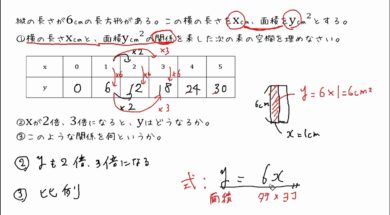 縦の長さが6cmの長方形がある。この横の長さをxcm、面積をycm²とする。
①横の長さxcmと、面積ycm²の関係を表した次の表の空欄を埋めなさい。
×2 ×3
x 0 1 2 3 4 5
×6 ×6 ×6
y 0 6 12 18 24 30
×2 ×3
②xが2倍、3倍になると、yはどうなるか。
③このような関係を何というか。
② yも2倍、3倍になる
③ 比例
6cm
y=6×1=6cm²
x=1cm
式: y = 6x
面積 タテ×ヨコ